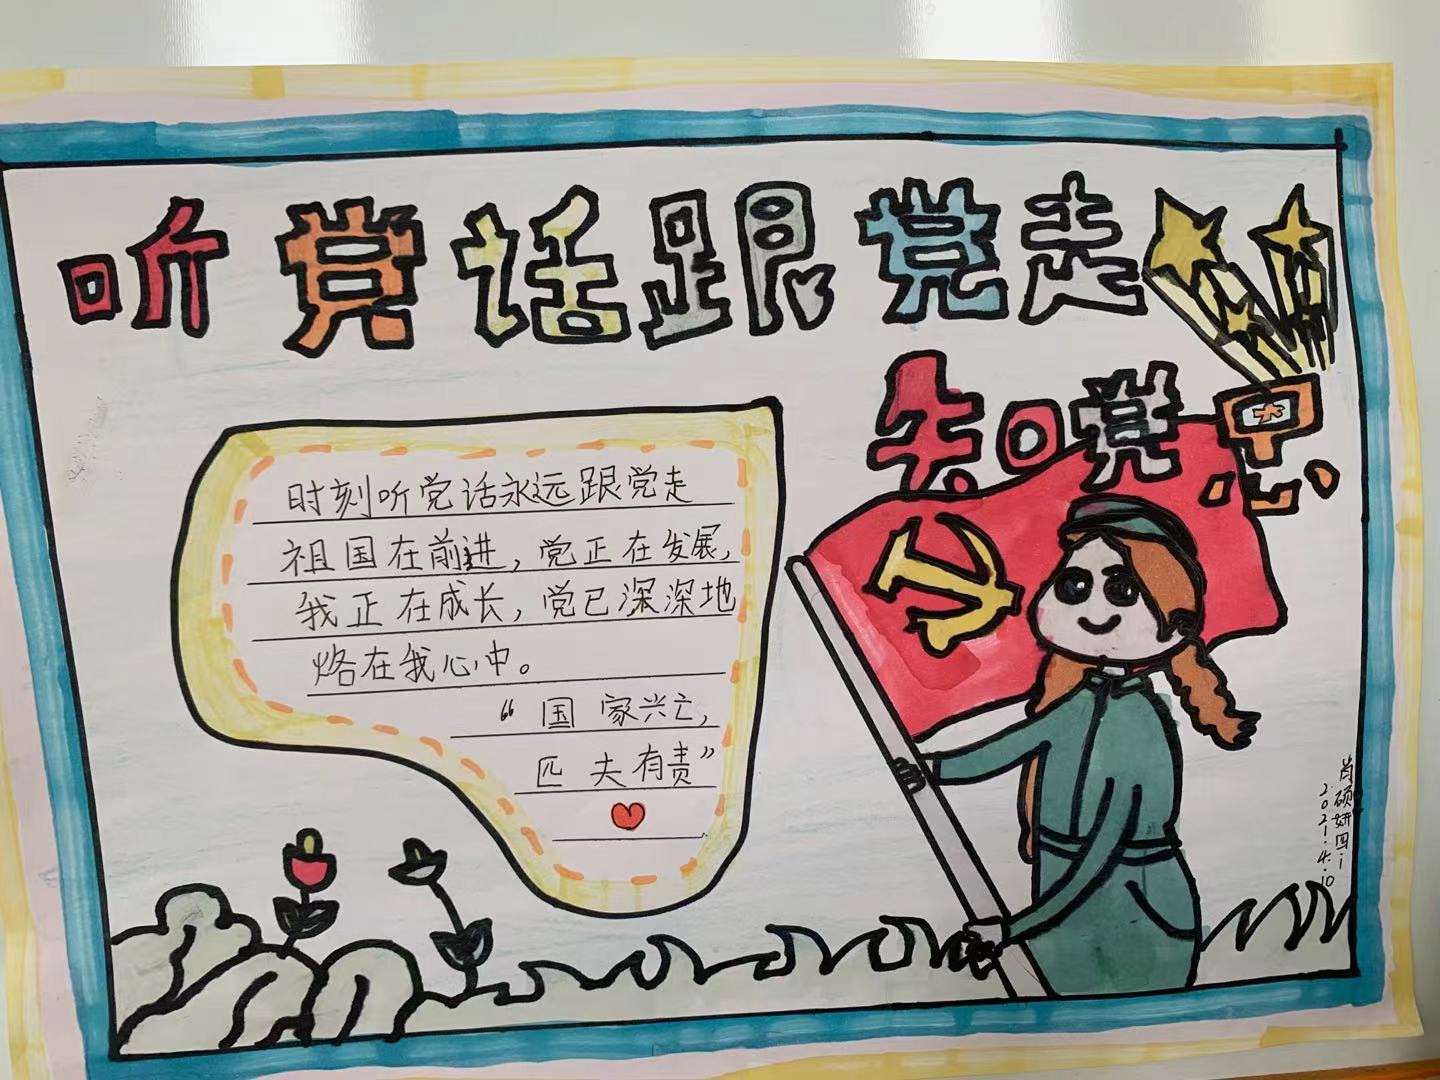 听党话跟党走
知党恩
时刻听党话永远跟党走
祖国在前进，党正在发展，
我正在成长，党已深深地
烙在我心中。
“国家兴亡，
匹夫有责”
肖硕妍四1
2021.4.10